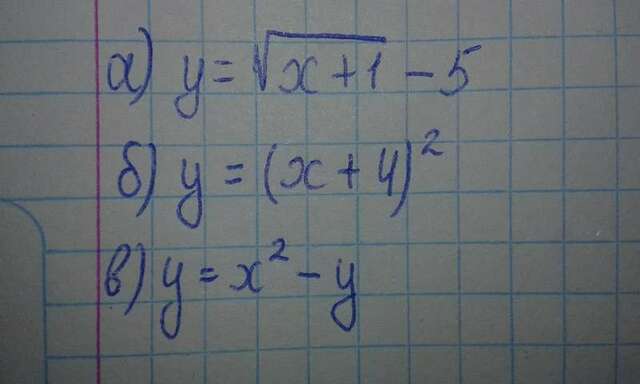 а) y = √x+1 - 5
б) y = (x + 4)²
в) y = x² - y